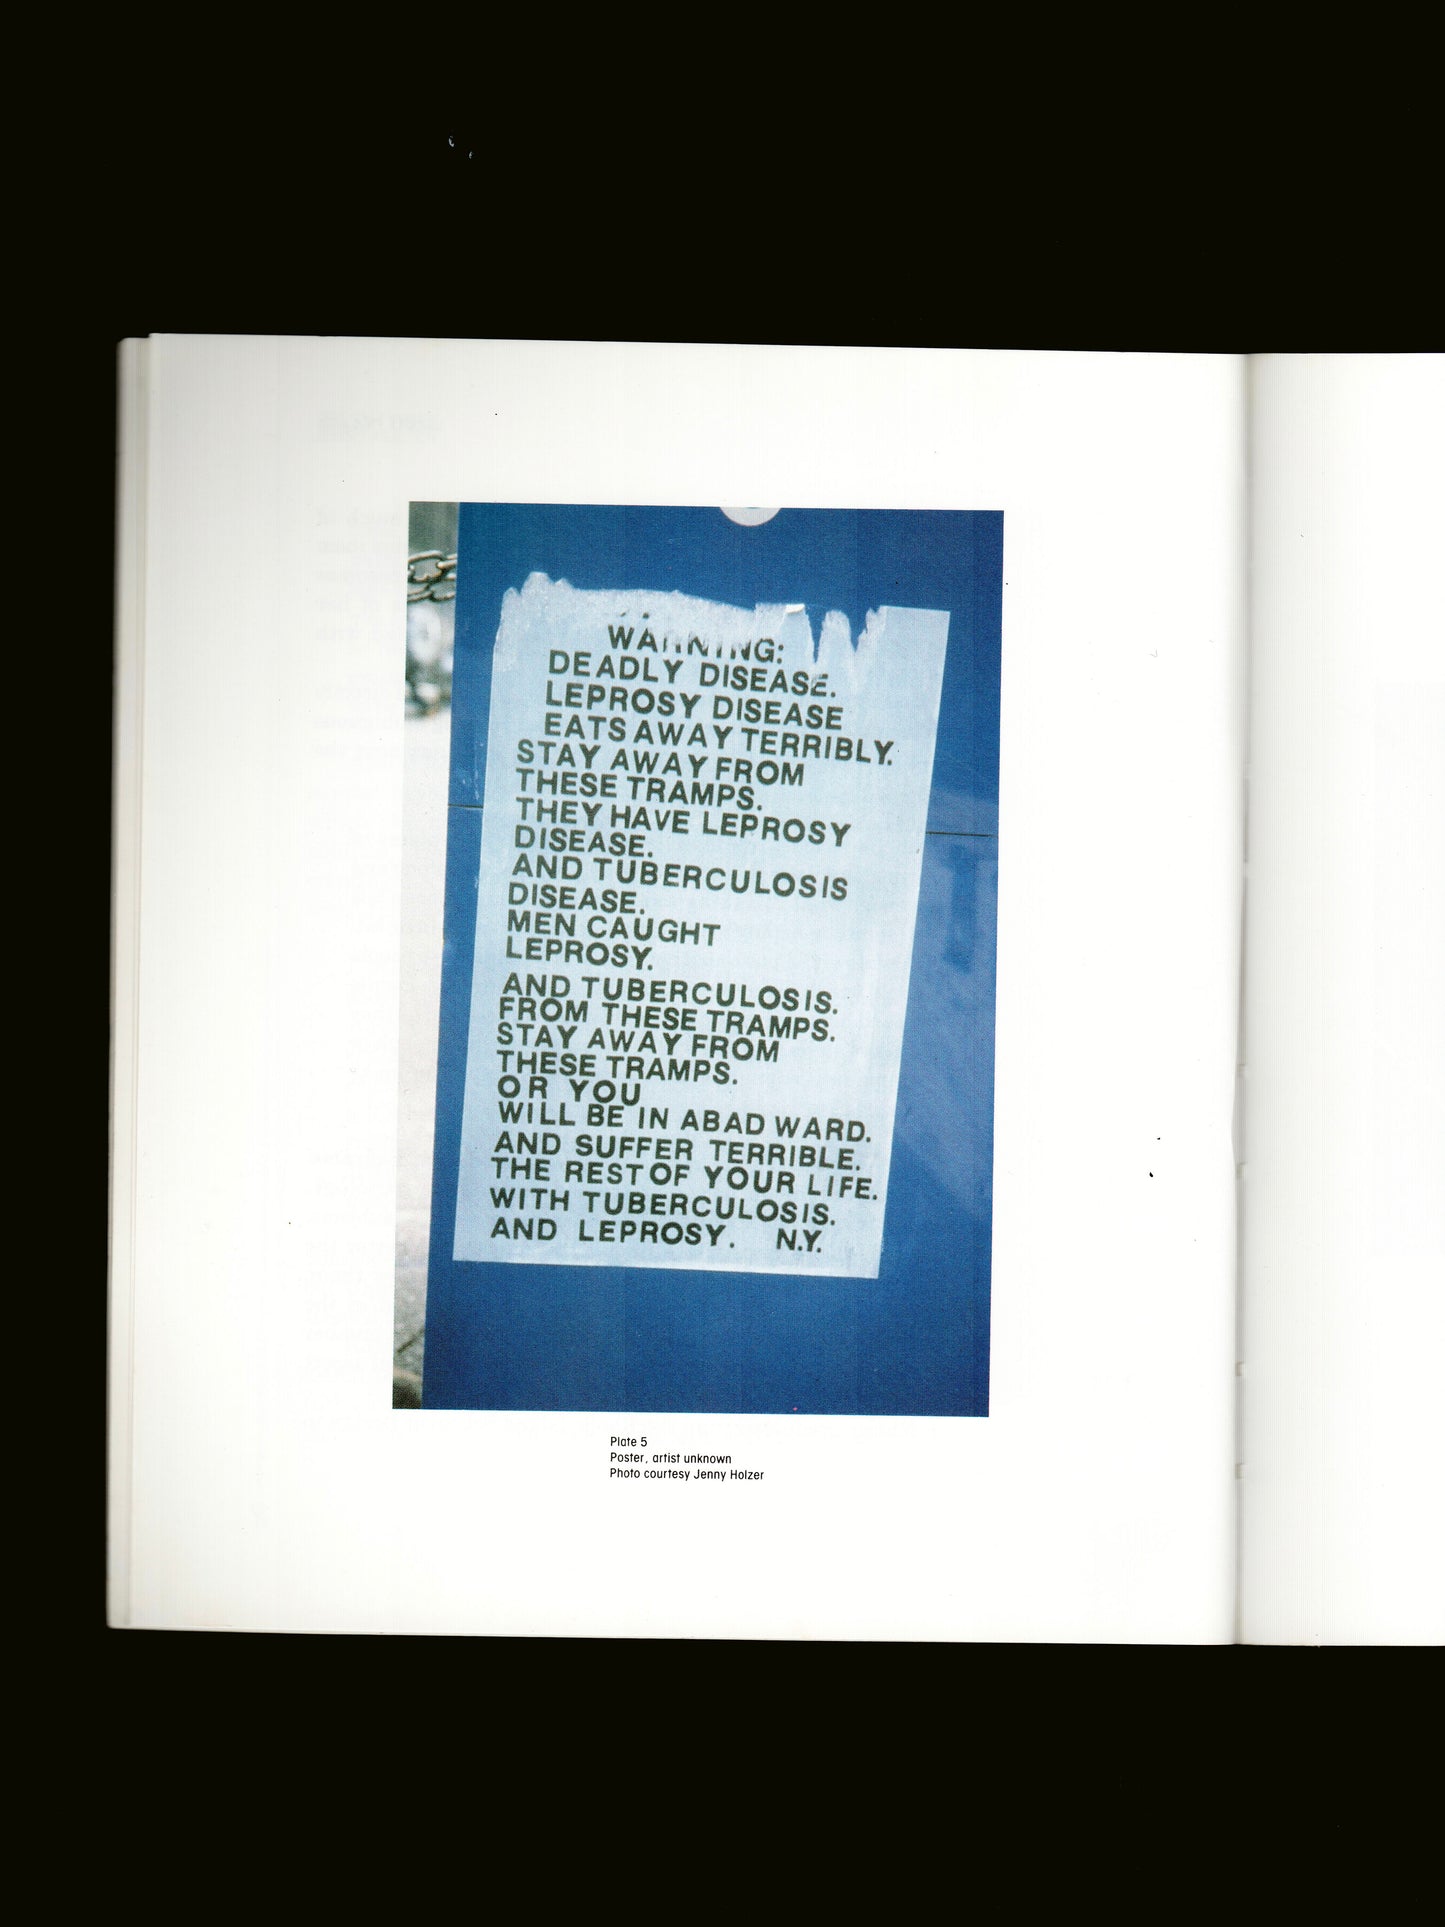 WARNING:
DEADLY DISEASE.
LEPROSY DISEASE
EATS AWAY TERRIBLY.
STAY AWAY FROM
THESE TRAMPS.
THEY HAVE LEPROSY
DISEASE.
AND TUBERCULOSIS
DISEASE.
MEN CAUGHT
LEPROSY.
AND TUBERCULOSIS.
FROM THESE TRAMPS.
STAY AWAY FROM
THESE TRAMPS.
OR YOU
WILL BE IN ABAD WARD.
AND SUFFER TERRIBLE.
THE REST OF YOUR LIFE.
WITH TUBERCULOSIS.
AND LEPROSY. N.Y.
Plate 5
Poster, artist unknown
Photo courtesy Jenny Holzer